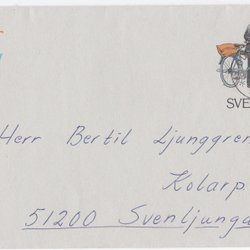 SVE
Herr Bertil Ljunggren
Kolarp
51200 Svenljunga